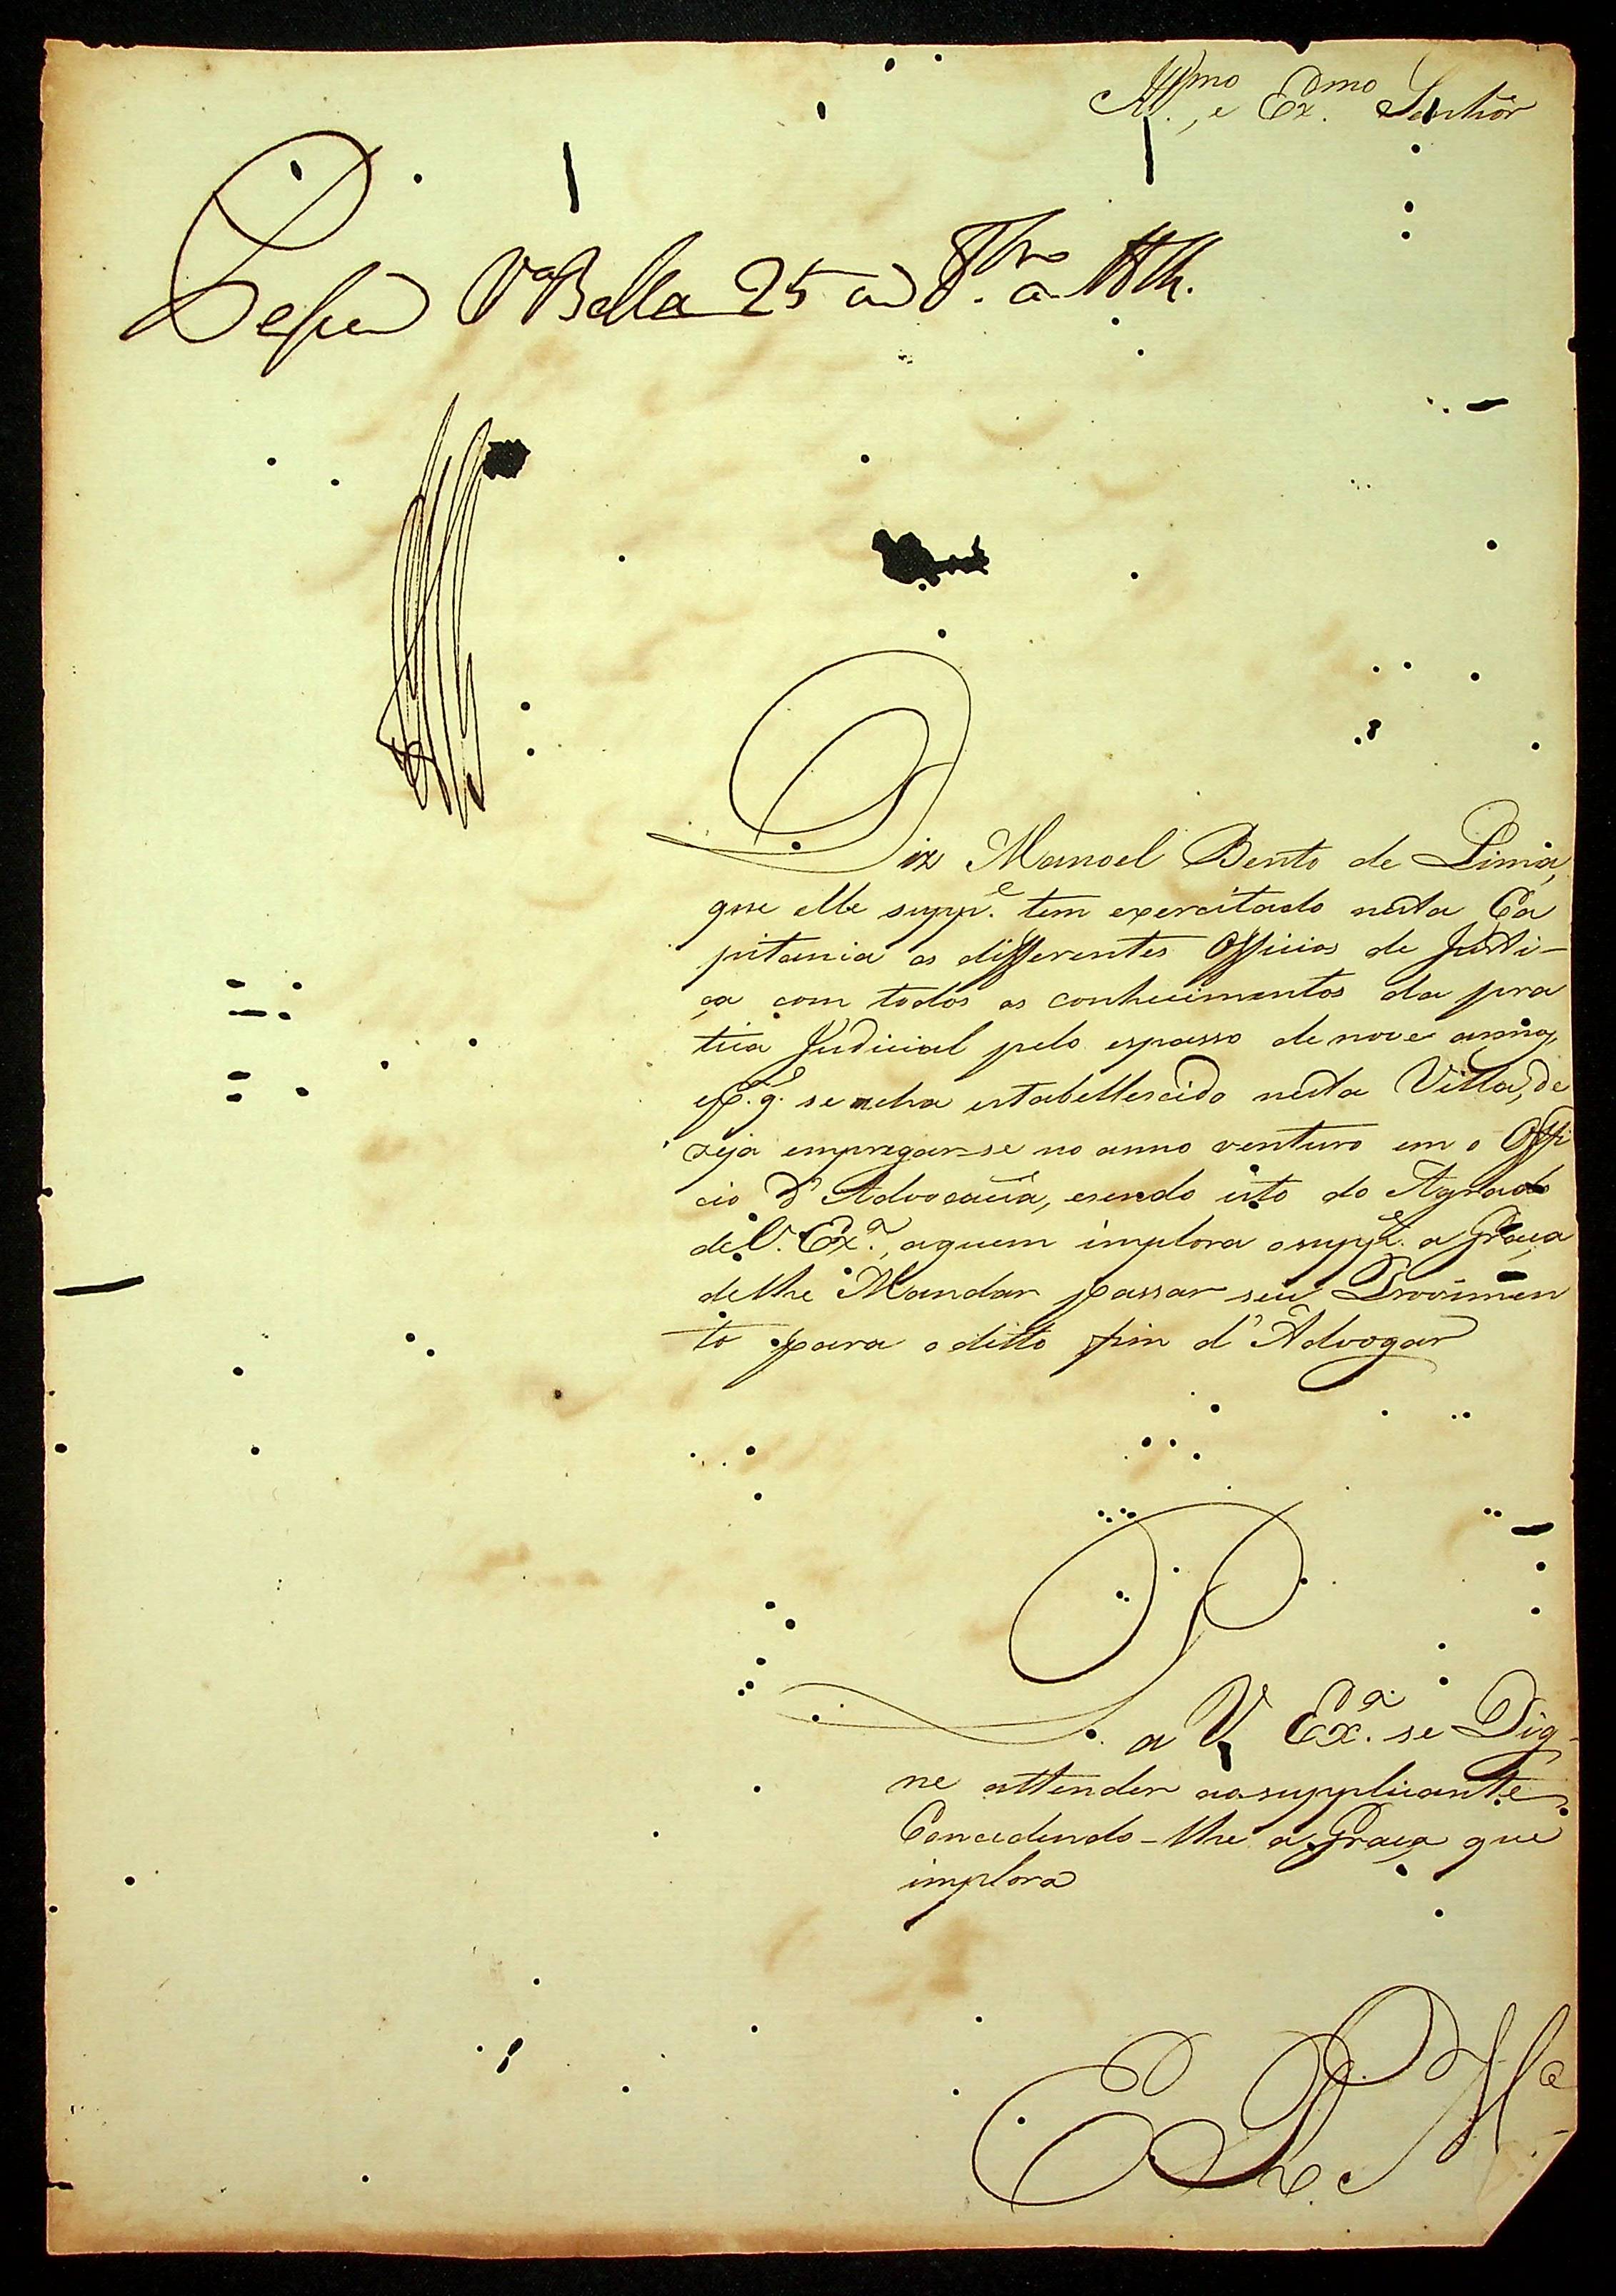 Ill.mo, e Ex.mo Senhor
V.a Bella 25 de 8.bro de
Diz Manoel Bento de Lima,
que elle supp.e tem exercitado nesta Ca
pitania os differentes Officios de Justi-
ça com todos os conhecimentos da pra
tica Judicial pelo espasso de nove annos,
se acha estabellescido nesta Villa, de
zeja empregar-se no anno venturo em o Offi
cio d'Advocacia, esendo isto do Agrado
de V. Ex.a, aquem implora osupp.e a Graça
delhe Mandar passar seu Provimen
to para oditto fim d'Advogar
P.
a V. Ex.a se Dig-
ne attender aosupplicante
Concedendo-lhe a Graça que
implora
E. R. M.ce